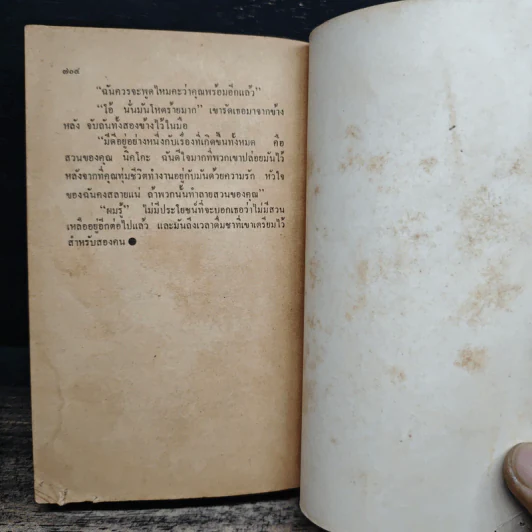 ๗๐๙
“ฉันควรจะพูดไหมคะว่าคุณพร้อมอีกแล้ว”
“โอ้ นั่นมันโหดร้ายมาก” เขารัดเธอมาจากข้าง
หลัง จับถันทั้งสองข้างไว้ในมือ
“มีดีอยู่อย่างหนึ่งกับเรื่องที่เกิดขึ้นทั้งหมด คือ
สวนของคุณ นิคโกะ ฉันดีใจมากที่พวกเขาปล่อยมันไว้
หลังจากที่คุณทุ่มชีวิตทำงานอยู่กับมันด้วยความรัก หัวใจ
ของฉันคงสลายแน่ ถ้าพวกนั้นทำลายสวนของคุณ”
“ผมรู้” ไม่มีประโยชน์ที่จะบอกเธอว่าไม่มีสวน
เหลืออยู่อีกต่อไปแล้ว และมันถึงเวลาดื่มชาที่เขาเตรียมไว้
สำหรับสองคน ●